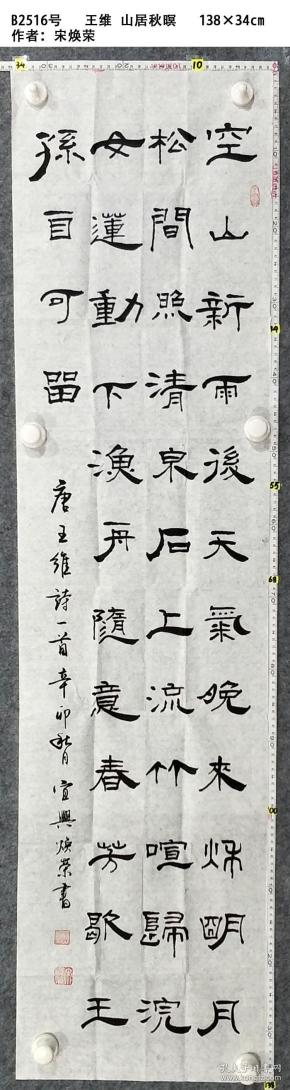 B2516号 王维 山居秋暝 138×34cm
作者：宋焕荣
空山新雨後天氣晚來秋明月
松間照清泉石上流竹喧歸浣
女蓮動下漁舟隨意春芳歇王
孫自可留
唐王維詩一首辛卯秋月宜興煥榮書